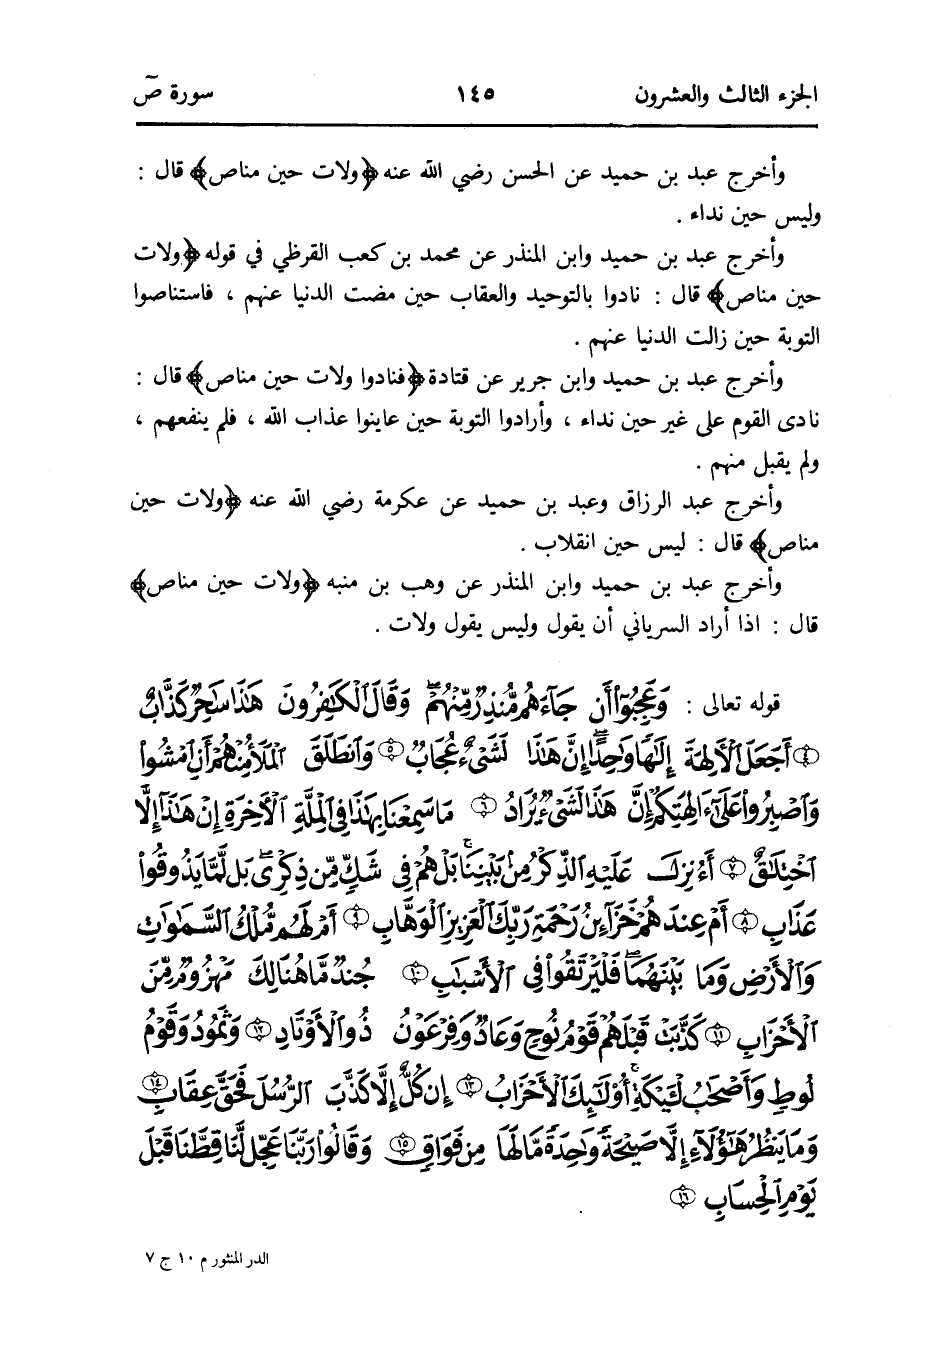 الجزء الثالث والعشرون ١٤٥ سورة صٓ
وأخرج عبد بن حميد عن الحسن رضي الله عنه ﴿ولات حين مناص﴾ قال :
وليس حين نداء .
وأخرج عبد بن حميد وابن المنذر عن محمد بن كعب القرظي في قوله ﴿ولات
حين مناص﴾ قال : نادوا بالتوحيد والعقاب حين مضت الدنيا عنهم ، فاستناصوا
التوبة حين زالت الدنيا عنهم .
وأخرج عبد بن حميد وابن جرير عن قتادة ﴿فنادوا ولات حين مناص﴾ قال :
نادى القوم على غير حين نداء ، وأرادوا التوبة حين عاينوا عذاب الله ، فلم ينفعهم ،
ولم يقبل منهم .
وأخرج عبد الرزاق وعبد بن حميد عن عكرمة رضي الله عنه ﴿ولات حين
مناص﴾ قال : ليس حين انقلاب .
وأخرج عبد بن حميد وابن المنذر عن وهب بن منبه ﴿ولات حين مناص﴾
قال : اذا أراد السرياني أن يقول وليس يقول ولات .
قوله تعالى : وَعَجِبُوٓا۟ أَن جَآءَهُم مُّنذِرٌ مِّنْهُمْ ۖ وَقَالَ ٱلْكَٰفِرُونَ هَٰذَا سَٰحِرٌ كَذَّابٌ
﴿٤﴾ أَجَعَلَ ٱلْءَالِهَةَ إِلَٰهًا وَٰحِدًا ۖ إِنَّ هَٰذَا لَشَىْءٌ عُجَابٌ ﴿٥﴾ وَٱنطَلَقَ ٱلْمَلَأُ مِنْهُمْ أَنِ ٱمْشُوا۟
وَٱصْبِرُوا۟ عَلَىٰٓ ءَالِهَتِكُمْ ۖ إِنَّ هَٰذَا لَشَىْءٌ يُرَادُ ﴿٦﴾ مَا سَمِعْنَا بِهَٰذَا فِى ٱلْمِلَّةِ ٱلْءَاخِرَةِ إِنْ هَٰذَآ إِلَّا
ٱخْتِلَٰقٌ ﴿٧﴾ أَءُنزِلَ عَلَيْهِ ٱلذِّكْرُ مِنۢ بَيْنِنَا ۚ بَلْ هُمْ فِى شَكٍّ مِّن ذِكْرِى ۖ بَل لَّمَّا يَذُوقُوا۟
عَذَابِ ﴿٨﴾ أَمْ عِندَهُمْ خَزَآئِنُ رَحْمَةِ رَبِّكَ ٱلْعَزِيزِ ٱلْوَهَّابِ ﴿٩﴾ أَمْ لَهُم مُّلْكُ ٱلسَّمَٰوَٰتِ
وَٱلْأَرْضِ وَمَا بَيْنَهُمَا ۖ فَلْيَرْتَقُوا۟ فِى ٱلْأَسْبَٰبِ ﴿١٠﴾ جُندٌ مَّا هُنَالِكَ مَهْزُومٌ مِّنَ
ٱلْأَحْزَابِ ﴿١١﴾ كَذَّبَتْ قَبْلَهُمْ قَوْمُ نُوحٍ وَعَادٌ وَفِرْعَوْنُ ذُو ٱلْأَوْتَادِ ﴿١٢﴾ وَثَمُودُ وَقَوْمُ
لُوطٍ وَأَصْحَٰبُ لْـَٔيْكَةِ ۚ أُو۟لَٰٓئِكَ ٱلْأَحْزَابُ ﴿١٣﴾ إِن كُلٌّ إِلَّا كَذَّبَ ٱلرُّسُلَ فَحَقَّ عِقَابِ ﴿١٤﴾
وَمَا يَنظُرُ هَٰٓؤُلَآءِ إِلَّا صَيْحَةً وَٰحِدَةً مَّا لَهَا مِن فَوَاقٍ ﴿١٥﴾ وَقَالُوا۟ رَبَّنَا عَجِّل لَّنَا قِطَّنَا قَبْلَ
يَوْمِ ٱلْحِسَابِ ﴿١٦﴾
الدر المنثور م ١٠ ج ٧